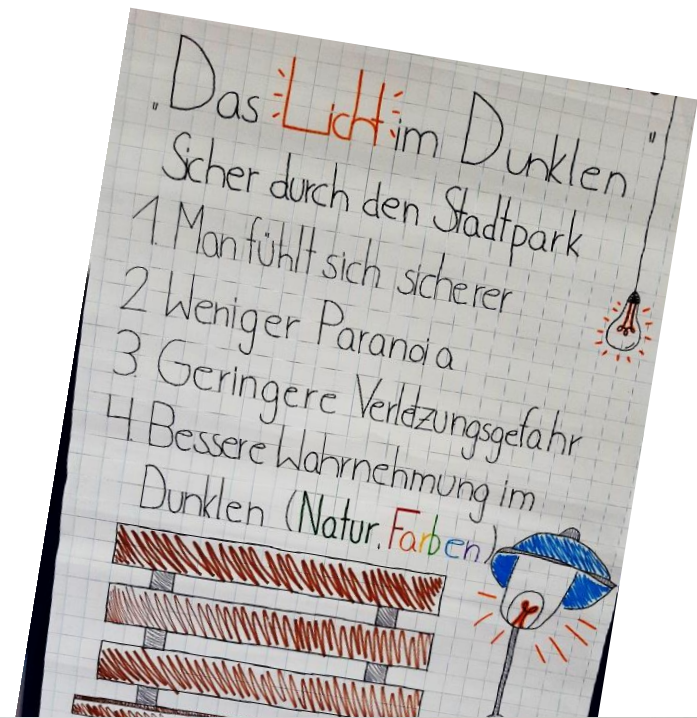 "Das Licht im Dunklen"
Sicher durch den Stadtpark
1. Man fühlt sich sicherer
2 Weniger Paranoia
3. Geringere Verletzungsgefahr
4. Bessere Wahrnehmung im
Dunklen (Natur, Farben)